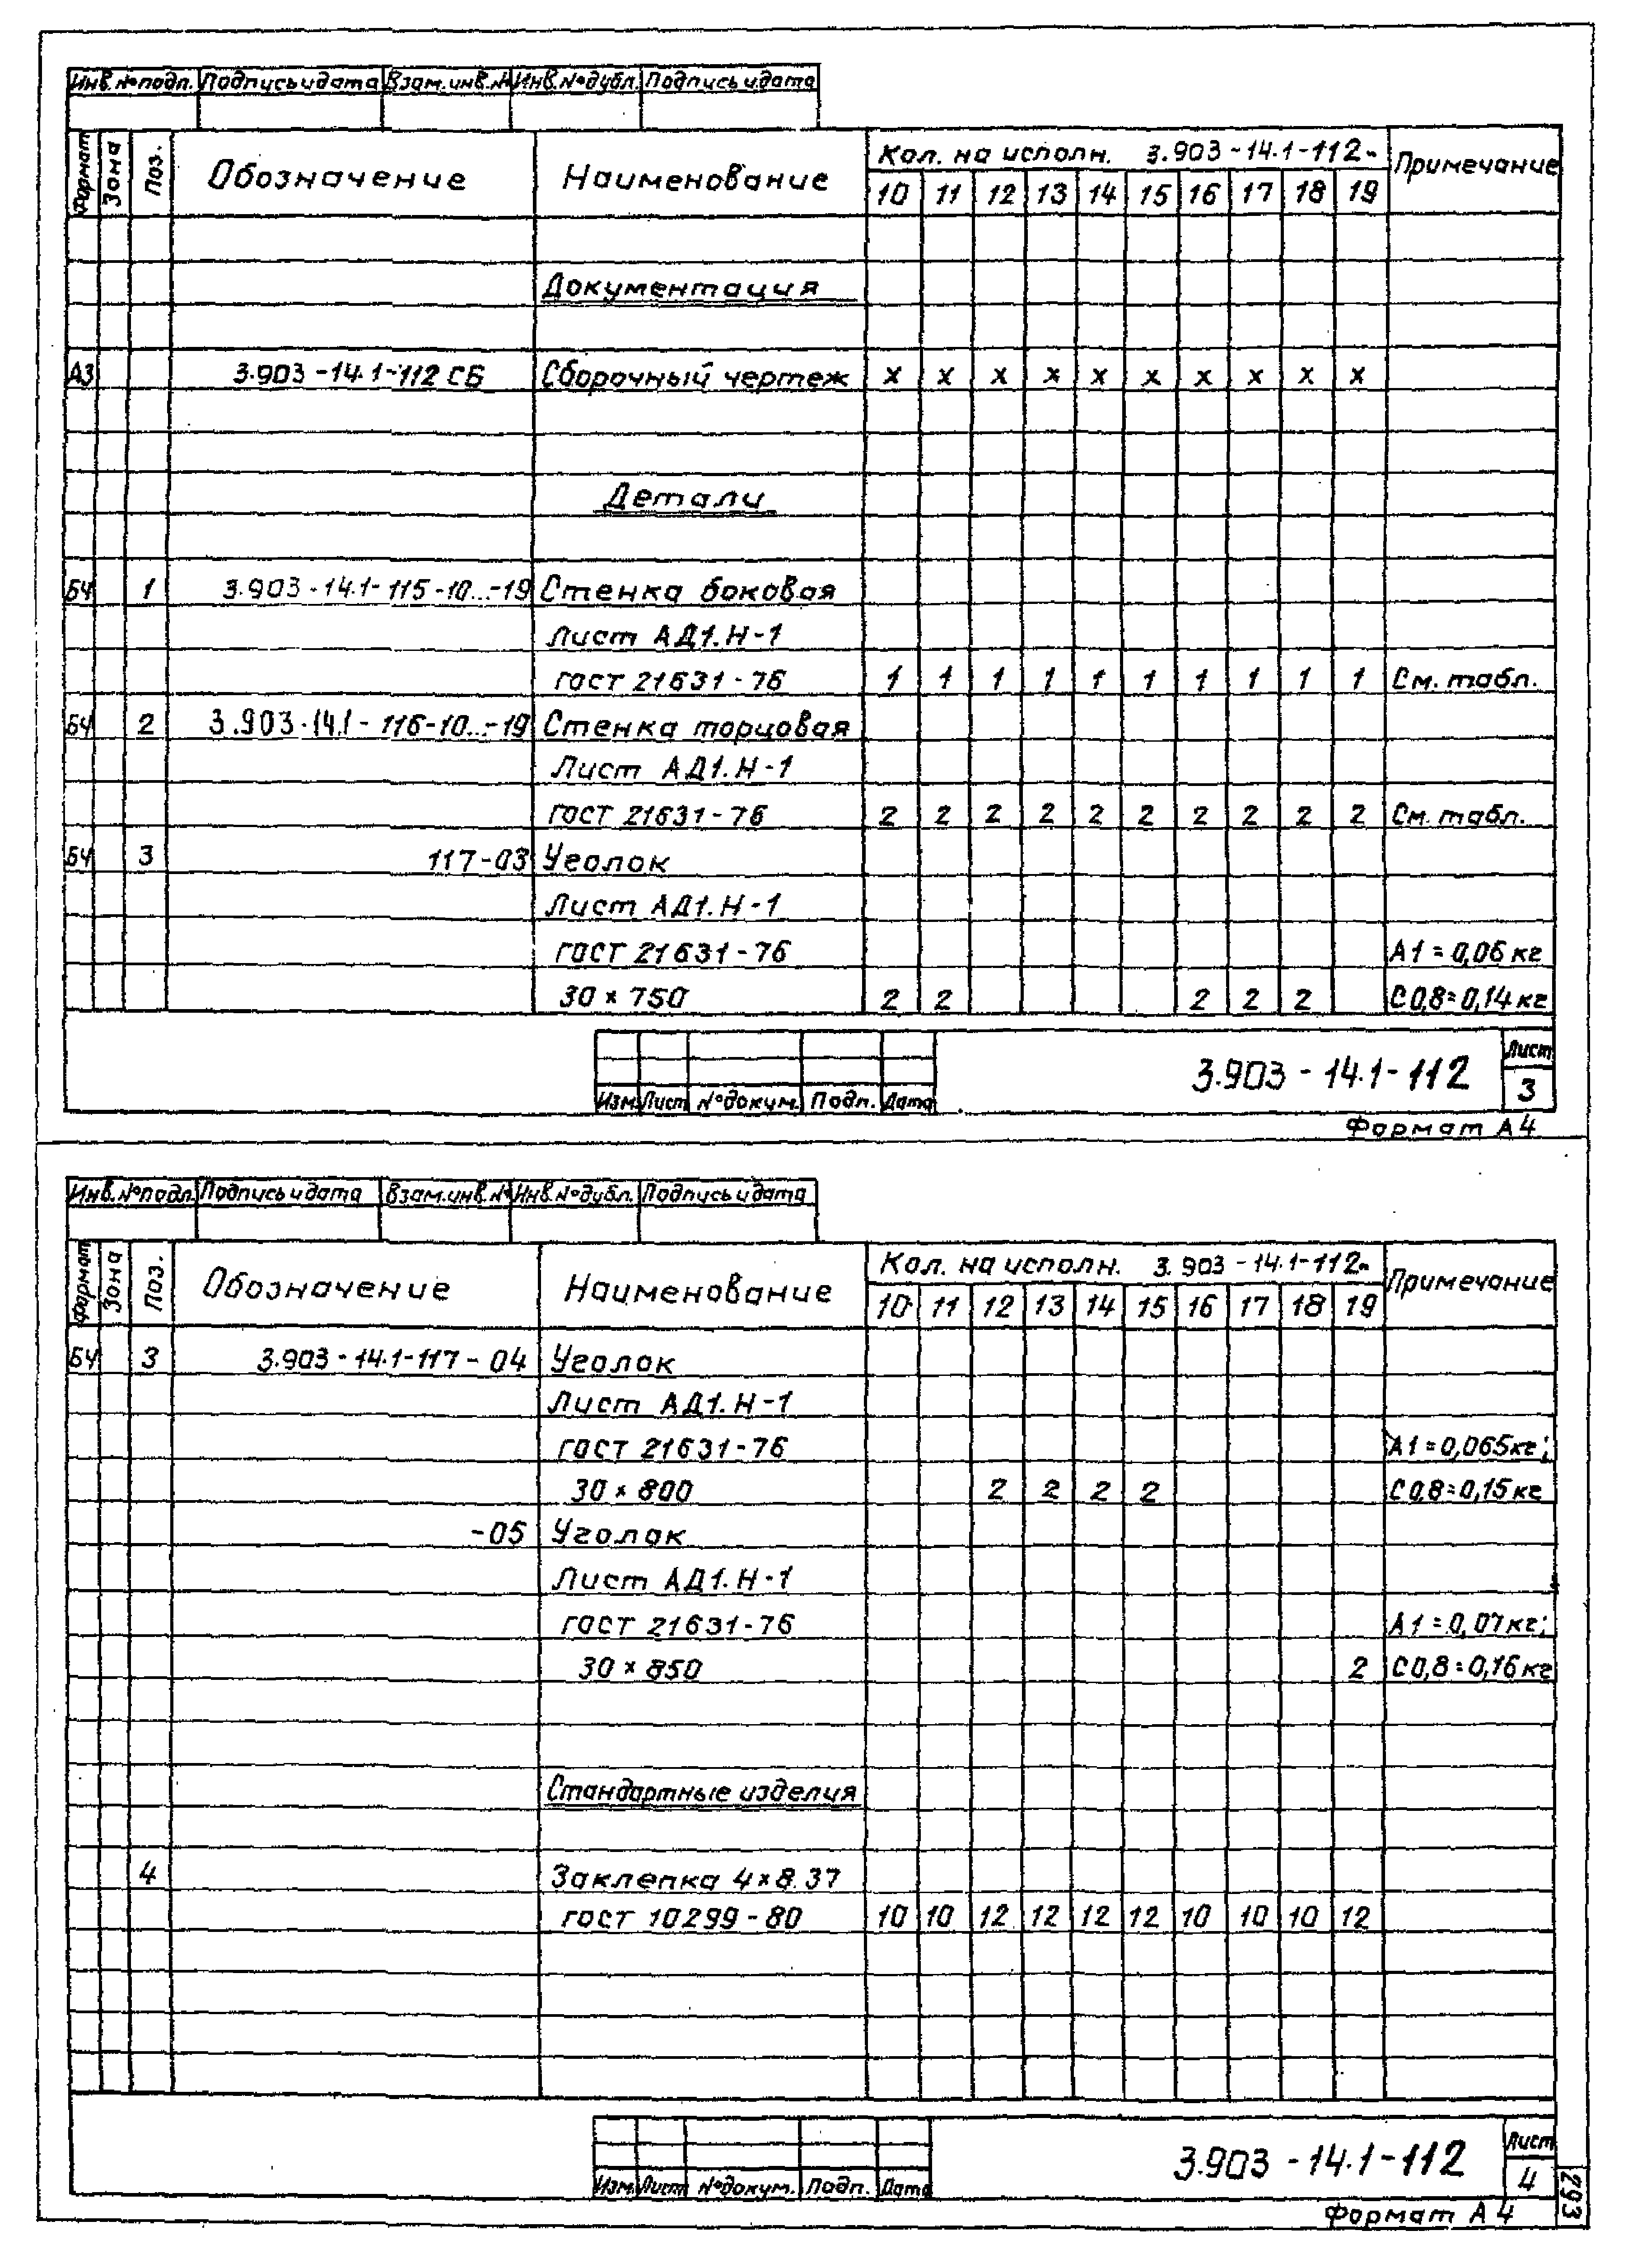 Инв.№подл. Подпись и дата Взам.инв.№ Инв.№дубл. Подпись и дата
Формат Зона Поз. Обозначение Наименование Кол. на исполн. 3.903-14.1-112- Примечание
10 11 12 13 14 15 16 17 18 19
Документация
А3 3.903-14.1-112 СБ Сборочный чертеж х х х х х х х х х х
Детали
БЧ 1 3.903-14.1-115-10...-19 Стенка боковая
Лист АД1.Н-1
ГОСТ 21631-76 1 1 1 1 1 1 1 1 1 1 См. табл.
БЧ 2 3.903-14.1-116-10...-19 Стенка торцовая
Лист АД1.Н-1
ГОСТ 21631-76 2 2 2 2 2 2 2 2 2 2 См. табл.
БЧ 3 117-03 Уголок
Лист АД1.Н-1
ГОСТ 21631-76 А1=0,06 кг
30×750 2 2 2 2 2 С0,8=0,14 кг
3.903-14.1-112 Лист
Изм. Лист №докум. Подп. Дата 3
Формат А4
Инв.№подл. Подпись и дата Взам.инв.№ Инв.№дубл. Подпись и дата
Формат Зона Поз. Обозначение Наименование Кол. на исполн. 3.903-14.1-112- Примечание
10 11 12 13 14 15 16 17 18 19
БЧ 3 3.903-14.1-117-04 Уголок
Лист АД1.Н-1
ГОСТ 21631-76 А1=0,065кг;
30×800 2 2 2 2 С0,8=0,15 кг
-05 Уголок
Лист АД1.Н-1
ГОСТ 21631-76 А1=0,07кг;
30×850 2 С0,8=0,16 кг
Стандартные изделия
4 Заклепка 4×8.37
ГОСТ 10299-80 10 10 12 12 12 12 10 10 10 12
3.903-14.1-112 Лист
Изм. Лист №докум. Подп. Дата 4
Формат А4
293